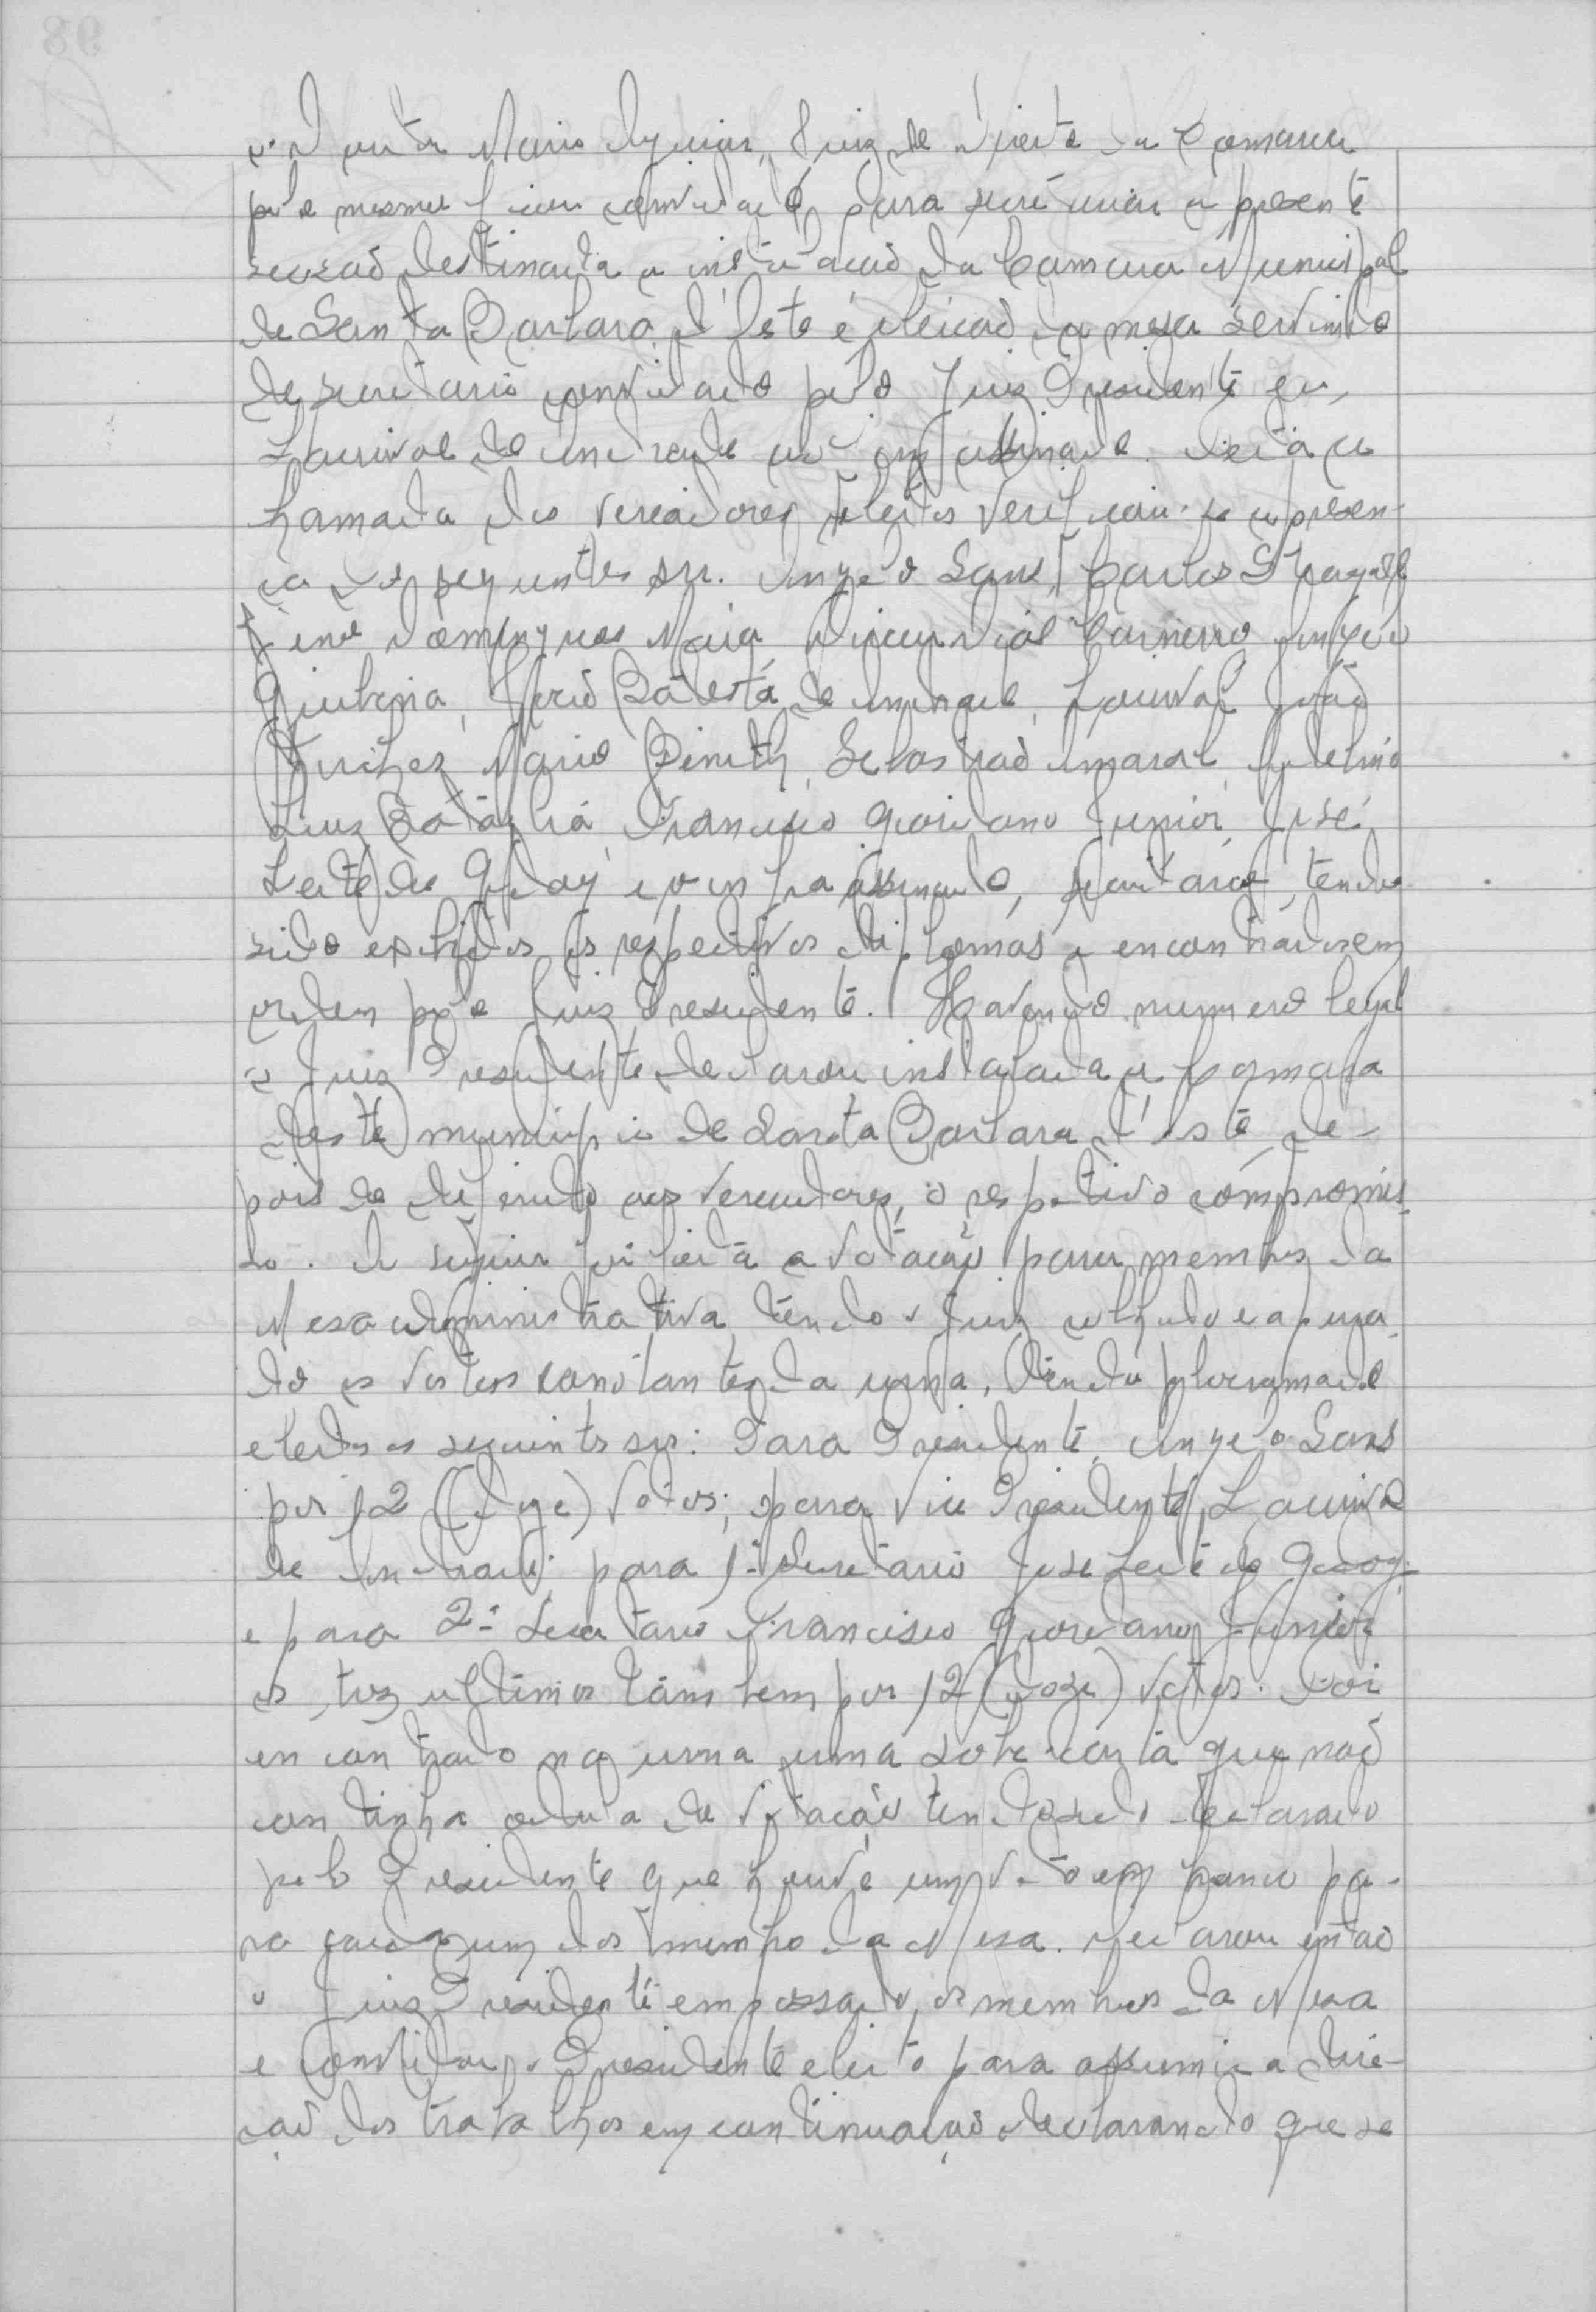 o Doutor Mario Aguiar, Juiz de Direito da Comarca
pelo mesmo fiquei convidado para secretariar a presente
secsaõ destinada a instalacaõ da Camara Municipal
de Santa Barbara d'Oeste e eleicaõ da mesa servindo
de secretario convidado pelo Juiz Presidente eu,
Lourival de Andrade infra assinado. Feita a
chamada dos vereadores eleitos verificou-se a presen-
ça dos seguintes srs. Angelo Sans, Carlos Steagall
Domingues Maia, Dicurvial Carneiro
Giubbina, Baptista de Andrade, Lourival João
Furchez Mario Pinith, Sebastiaõ Amaral, Adelino
Luiz Bataglia, Francisco Giordano Junior, José
Leite de Godoy e o infra assinado, secretario, tendo
sido exibidos os respectivos diplomas e encontrados em
ordem pelo Juiz Presidente. Havendo numero legal
o Juiz Presidente declarou instalada a Camara
deste municipio de Santa Barbara d'Oeste, de-
pois de deferido aos vereadores, o respetivo compromis-
so. A seguir foi feita a votação para membros da
Mesa administrativa tendo o Juiz colhido e apura-
do os votos constantes da urna, sendo proclamado
eleitos os seguintes srs: Para Presidente, Angelo Sans
por 12 (doze) votos; para Vice Presidente, Lourival
de Andrade; para 1º Secretario José Leite de Godoy
e para 2º Secretario Francisco Giordano Junior
os trez ultimos tambem por 12 (doze) votos. Foi
encontrado na urna uma sobre-carta que naõ
continha cedula de votação tendo sido declarado
pelo Presidente que houve um voto em branco pa-
ra cada um dos membro da Mesa. Declarou entaõ
o Juiz Presidente empossado os membros da Mesa
e convidou o Presidente eleito para assumir a dire-
çaõ dos trabalhos em continuaçaõ declarando que se